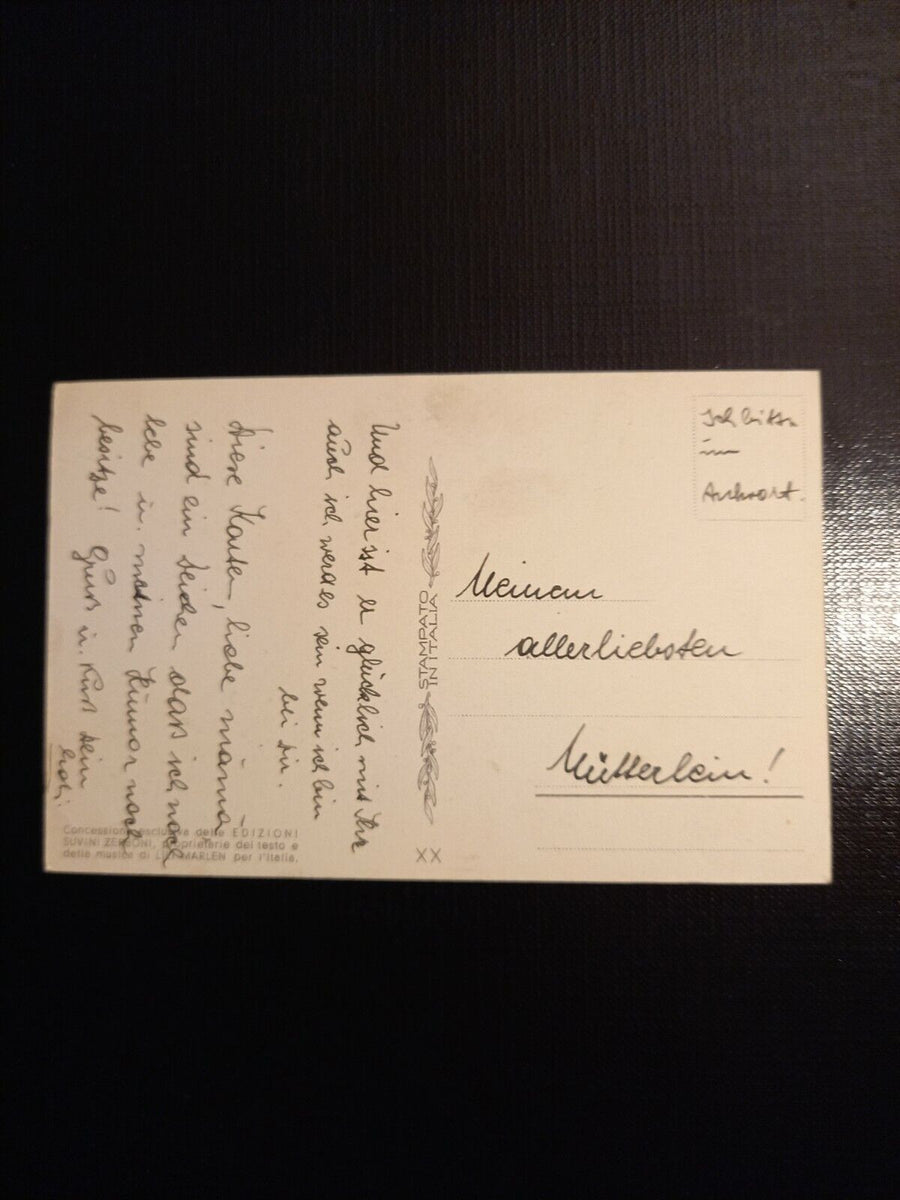 Und hier ist er glücklich mit Ihr
auch ich werde es sein wenn ich bin
bei Dir.
Diese Karten, liebe Mama,
sind ein Zeichen daß ich noch
lebe u. meinen Humor noch
besitze! Gruß u. Kuß Dein
Concessione esclusiva delle EDIZIONI
SUVINI ZERBONI, proprietarie del testo e
della musica di LILI MARLEN per l'Italia.
STAMPATO
IN ITALIA
XX
Ich bitte
um
Antwort.
Meinem
allerliebsten
Mütterlein!